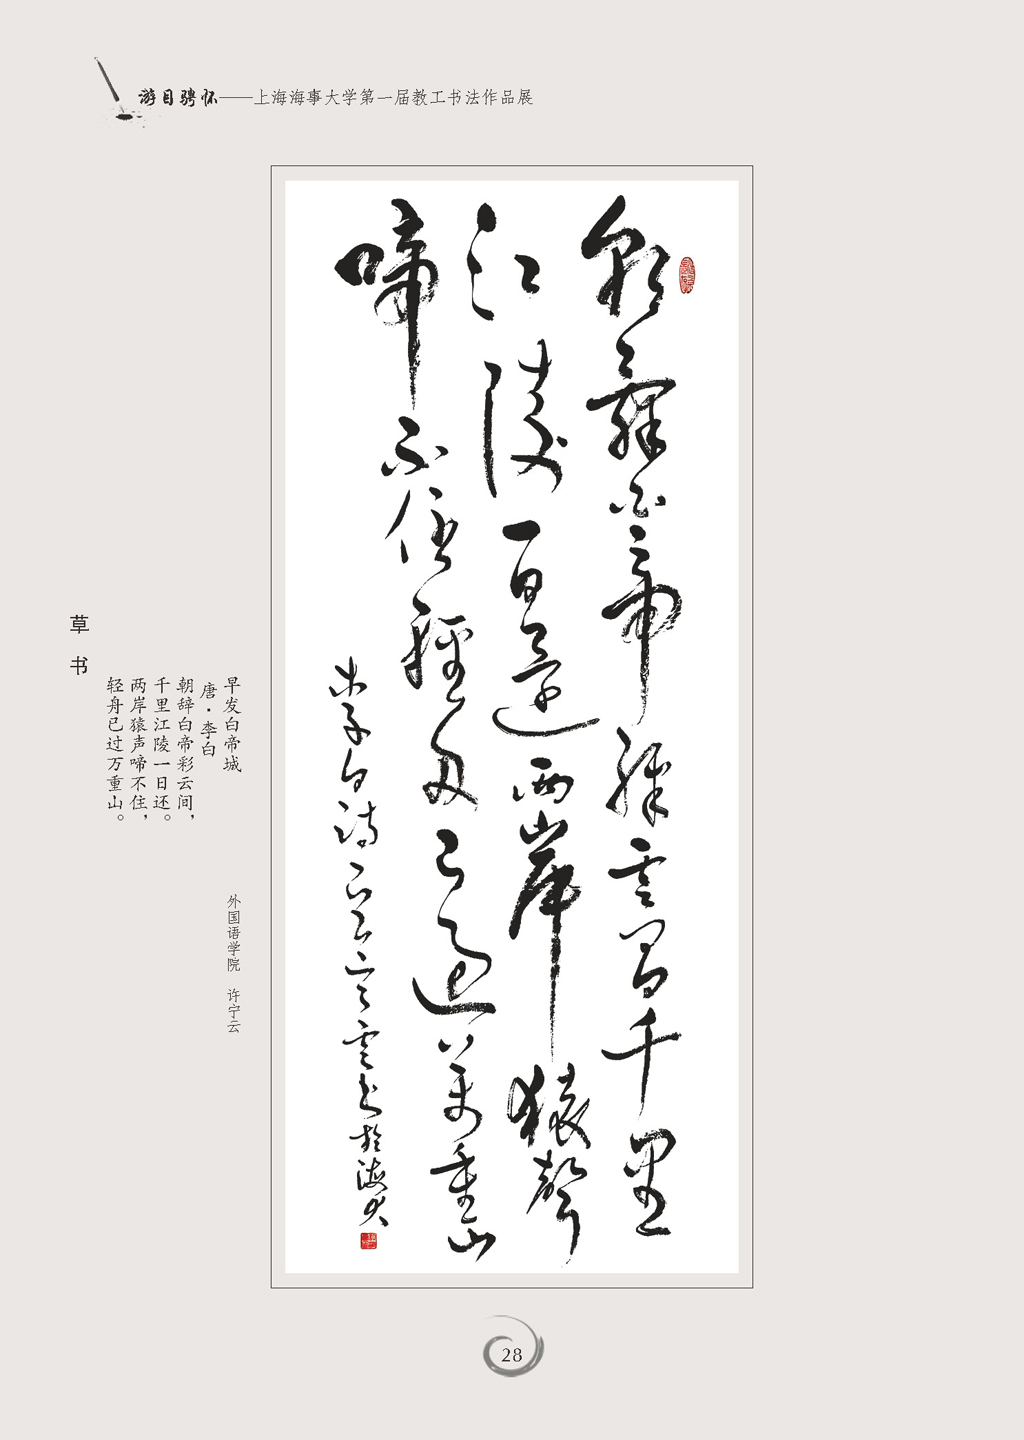 游目骋怀——上海海事大学第一届教工书法作品展
朝辭白帝彩雲間千里
江陵一日還兩岸猿聲
啼不住輕舟已過萬重山
李白詩 寧雲書於海大
早发白帝城
唐·李白
朝辞白帝彩云间，
千里江陵一日还。
两岸猿声啼不住，
轻舟已过万重山。
外国语学院 许宁云
草书
28